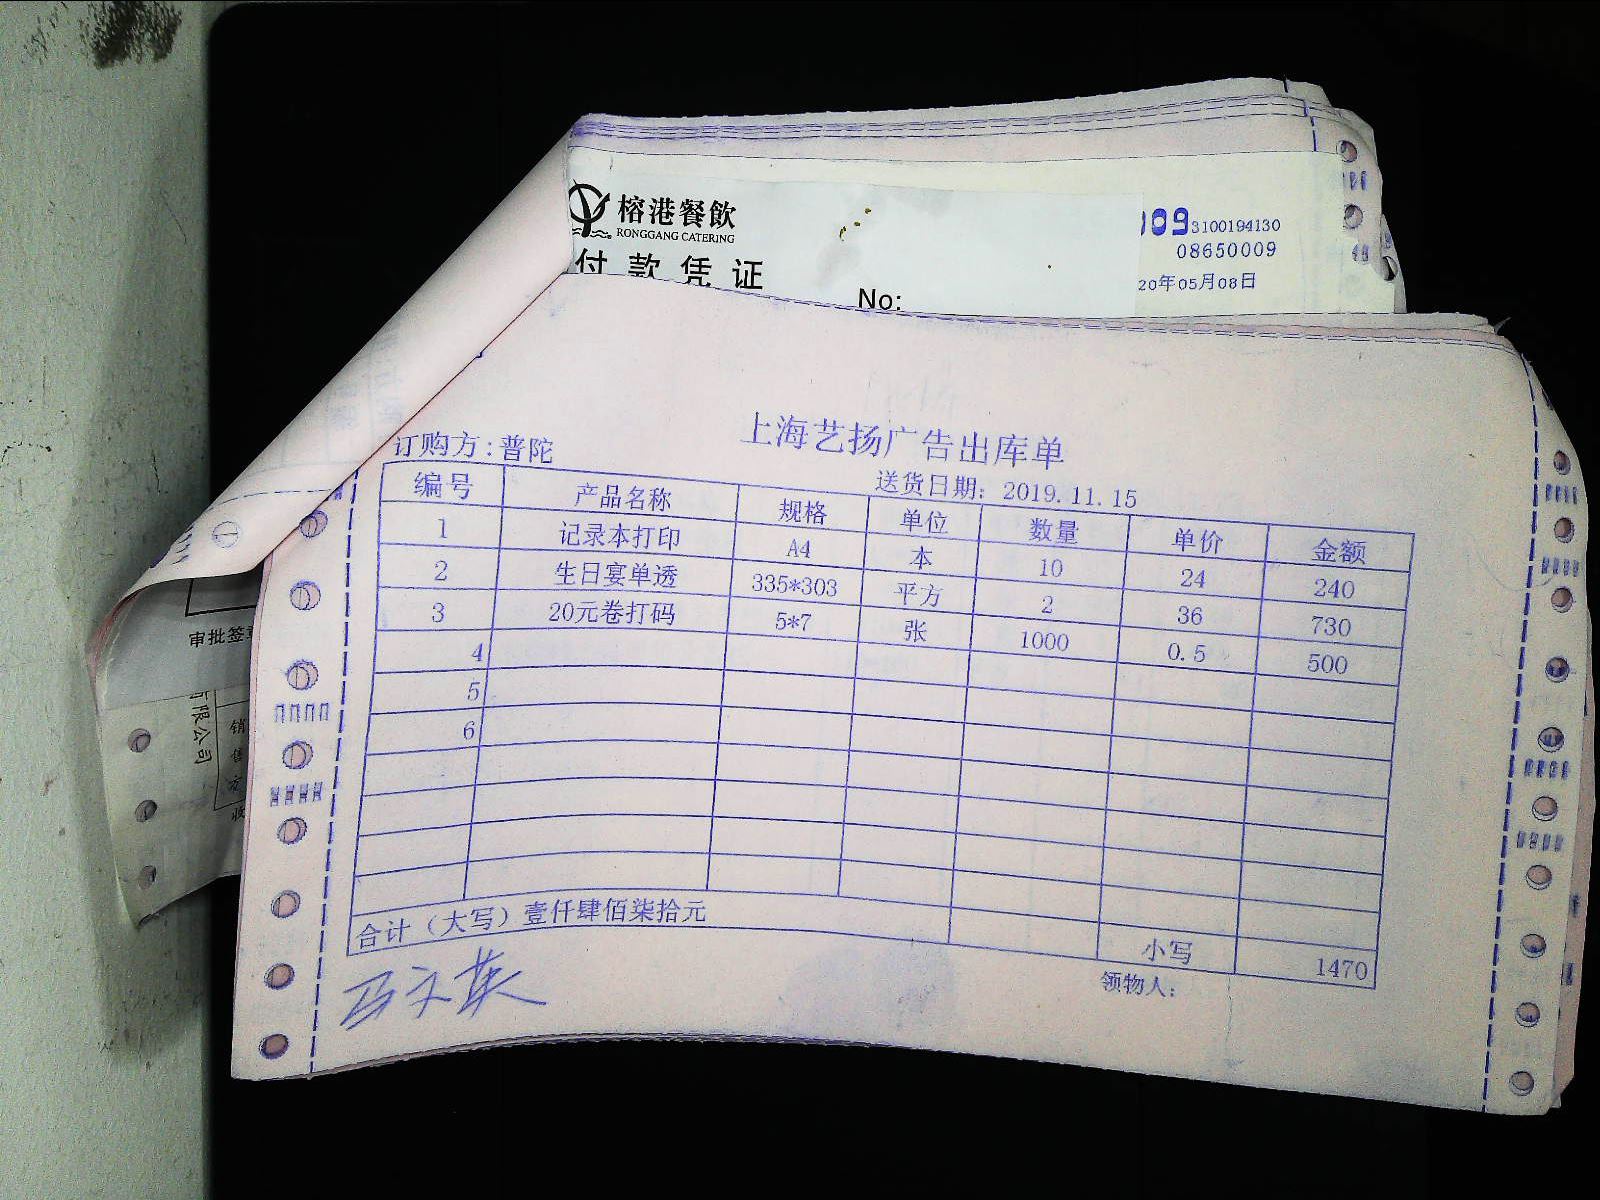 榕港餐飲
RONGGANG CATERING
付款凭证
No:
09 3100194130
08650009
20年05月08日
上海艺扬广告出库单
订购方:普陀
送货日期: 2019.11.15
编号 产品名称 规格 单位 数量 单价 金额
1 记录本打印 A4 本 10 24 240
2 生日宴单透 335*303 平方 2 36 730
3 20元卷打码 5*7 张 1000 0.5 500
4
5
6
合计（大写）壹仟肆佰柒拾元 小写 1470
领物人:
审批签
限公司
销
售